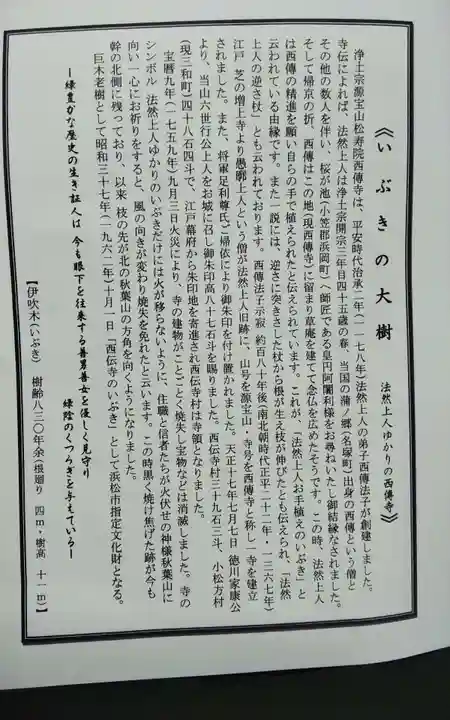 《いぶきの大樹
法然上人ゆかりの西傳寺》
浄土宗源宝山松寿院西傳寺は、平安時代治承二年(一一七八年)法然上人の弟子西傳法子が創建しました。
寺伝によれば、法然上人は浄土宗開宗三年目四十五歳の春、当国の蒲ノ郷(名塚町)出身の西傳という僧と
その他の数人を伴い、桜が池(小笠郡浜岡町)へ師匠である皇円阿闍利様をお尋ねいたし御結縁なされました。
そして帰京の折、西傳はこの地(現西傳寺)に留まり草庵を建てて念仏を広めたそうです。この時、法然上人
は西傳の精進を願い自らの手で植えられたと伝えられています。これが、「法然上人お手植えのいぶき」と
云われている由縁です。また一説には、逆さに突きさした杖から根が生え枝が伸びたとも伝えられ、「法然
上人の逆さ杖」とも云われております。西傳法子示寂 約百八十年後(南北朝時代正平二十二年・一三六七年)
江戸 芝の増上寺より愚廓上人という僧が法然上人旧跡に、山号を源宝山・寺号を西傳寺と称し一寺を建立
されました。また、将軍足利尊氏ご帰依により御朱印を付け置かれました。天正十七年七月七日 徳川家康公
より、当山六世行公上人をお城に召し御朱印高八十七石斗を賜りました。西伝寺村三十九石三斗、小松方村
(現三和町)四十八石四斗で、江戸幕府から朱印地を寄進され西伝寺村は寺領となりました。
宝暦九年(一七五九年)九月三日火災により、寺の建物がことごとく焼失し宝物などは消滅しました。寺の
シンボル 法然上人ゆかりのいぶきだけには火が移らないように、住職と信者たちが火伏せの神様秋葉山に
向い一心にお祈りをすると、風の向きが変わり焼失を免れたと云います。この時黒く焼け焦げた跡が今も
幹の北側に残っており、以来 枝の先が北の秋葉山の方角を向くようになりました。
巨木老樹として昭和三十七年(一九六二年)十月一日『西伝寺のいぶき』として浜松市指定文化財となる。
―緑豊かな歴史の生き証人は 今も眼下を往来する善男善女を優しく見守り
緑陰のくつろぎを与えている―
【伊吹木(いぶき) 樹齢八三〇年余(根廻り 四m・樹高 十一m)】